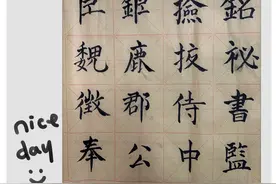 銘祕書監
撿挍侍中
鉅鹿郡公
臣魏徵奉
nice
day